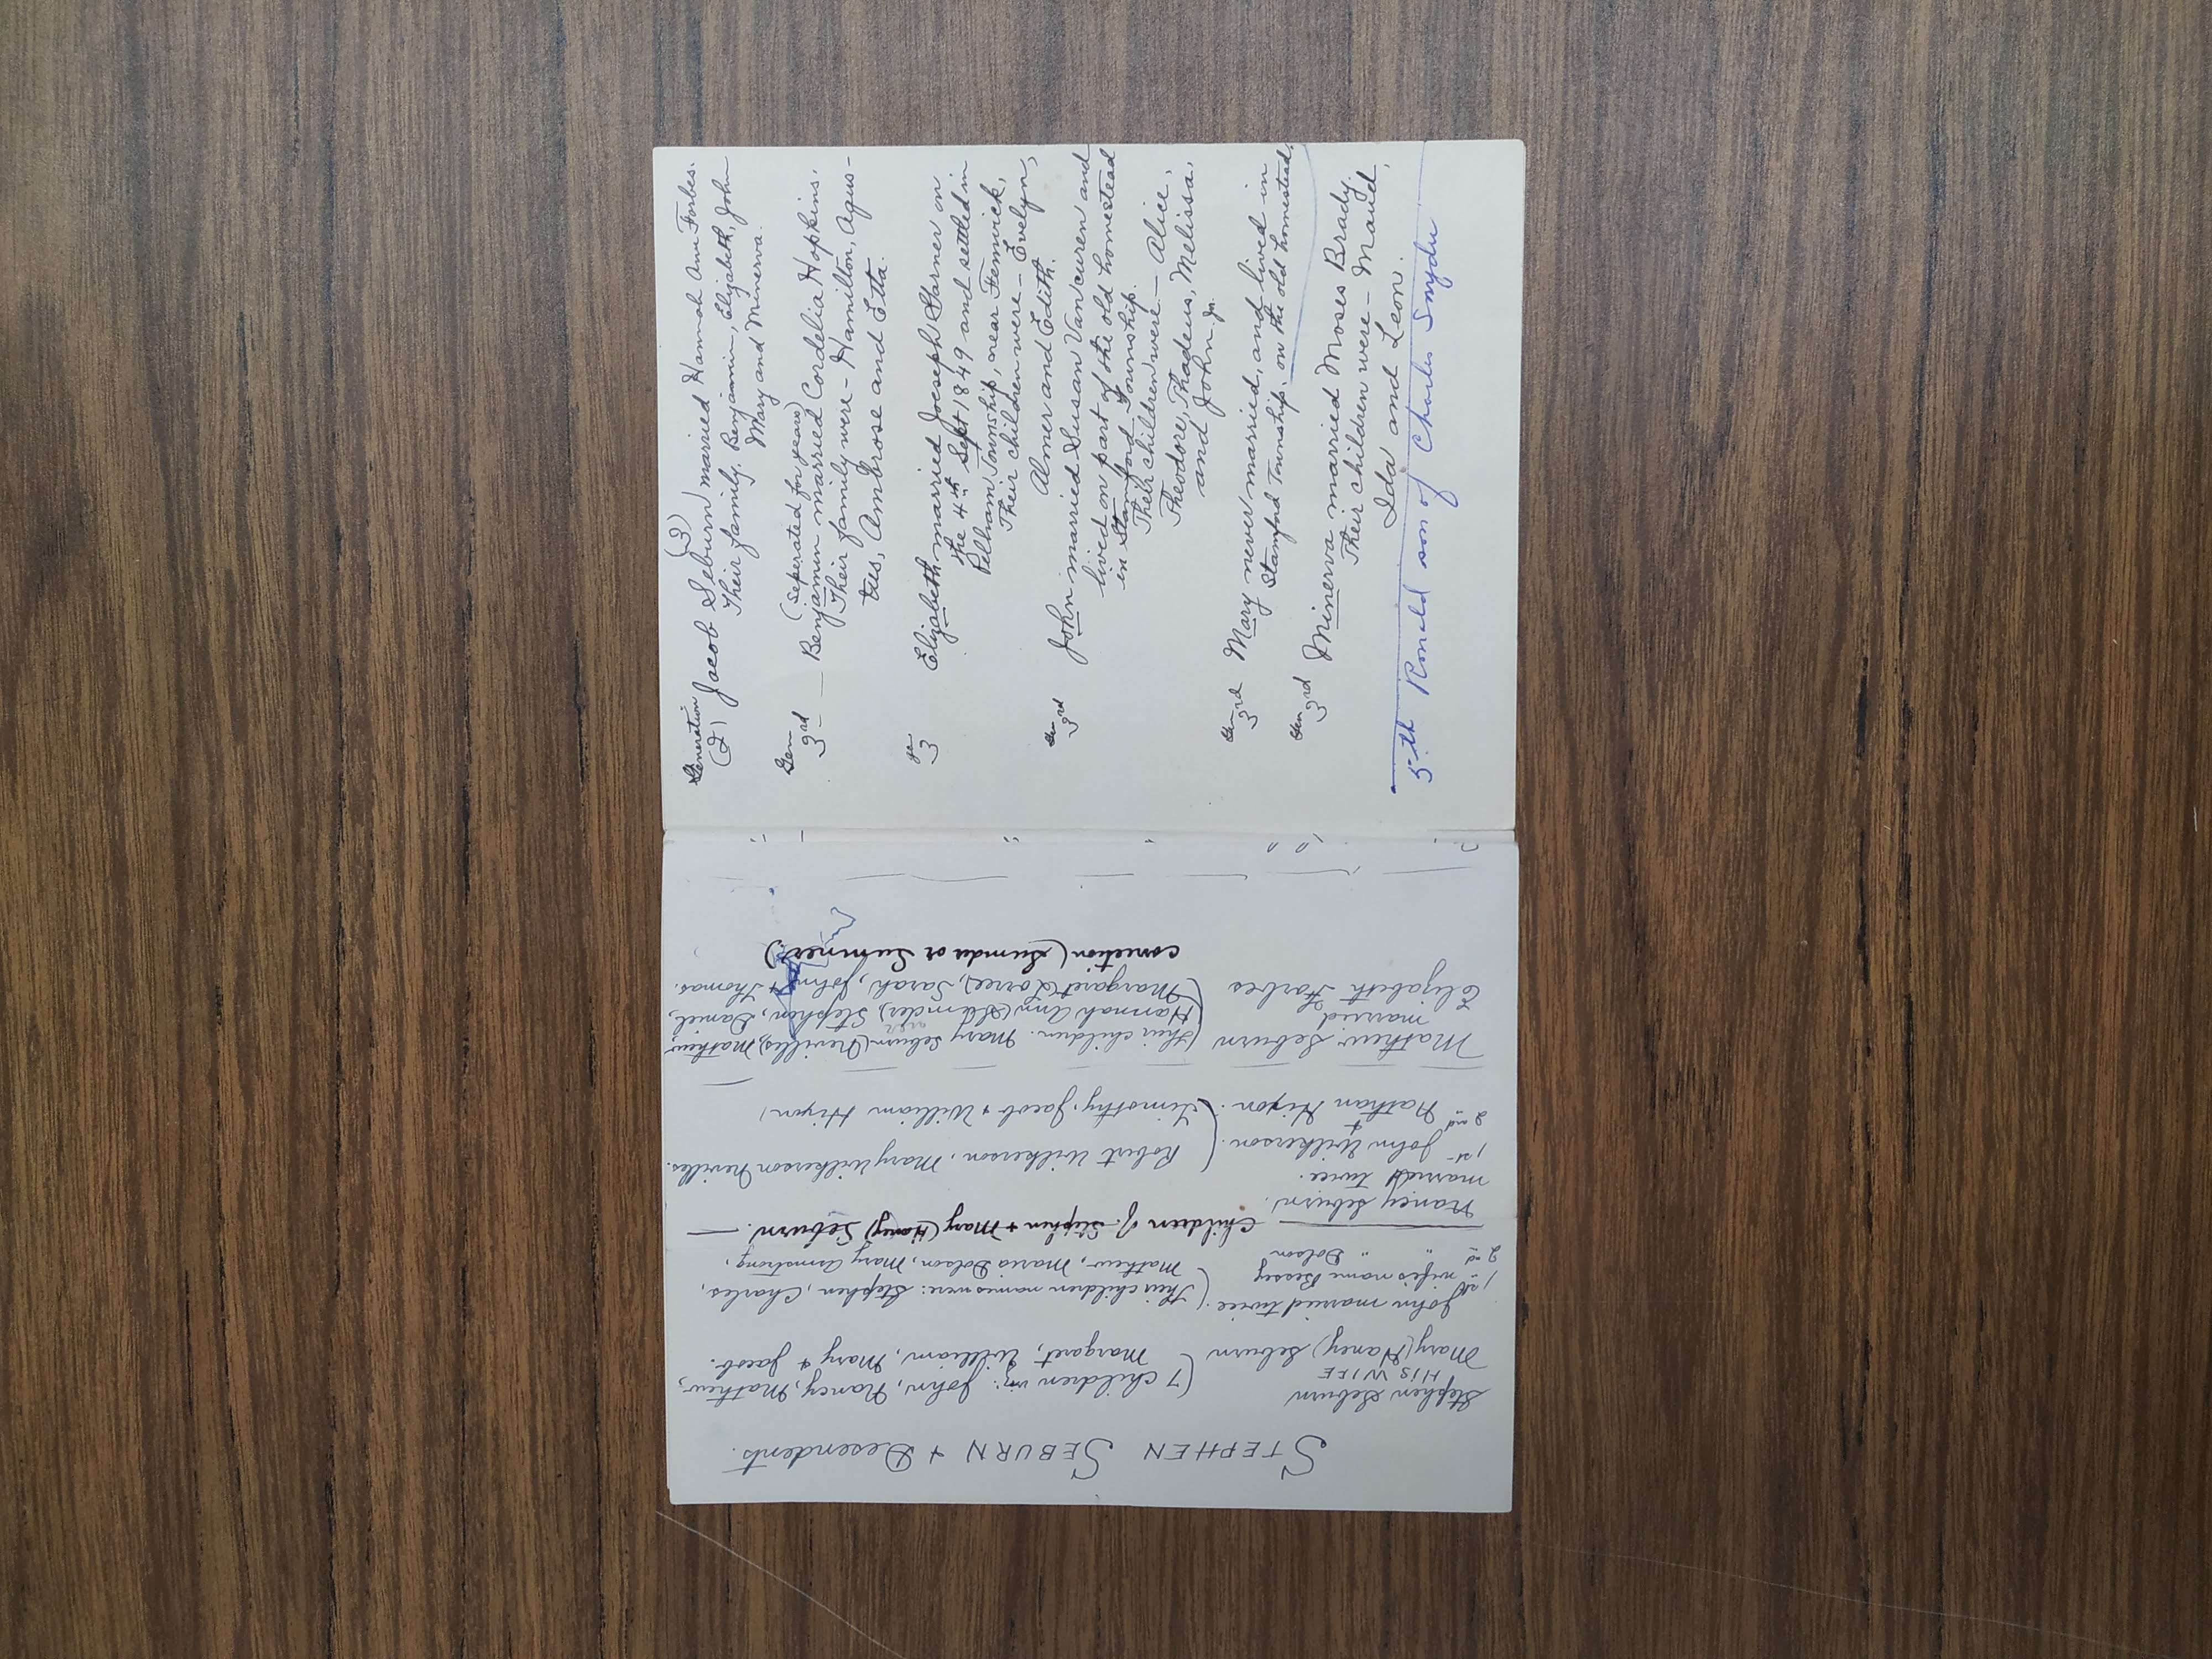 STEPHEN SEBURN + Desendents.
Stephen Seburn
HIS WIFE
Mary (Haney) Seburn
(7 children viz: John, Nancy, Mathew,
Margaret, William, Mary + Jacob.
John married twice.
1st wife's name Bessey
2nd " " Dolson
(Their children names were: Stephen, Charles,
Mathew, Maria Dolson, Mary Armstrong.
Children of Stephen + Mary (Haney) Seburn.
Nancy Seburn.
married twice.
1st John Wilkerson.
+
2nd Nathan Hixon.
(Robert Wilkerson, Mary Wilkerson Nevilles.
Timothy, Jacob + William Hixon)
Mathew Seburn
married
Elizabeth Forbes
(Their children. Mary Seburn (Nevilles), Mathew,
Hannah Ann (Sumder), Stephen, Daniel,
Margaret (Lorree), Sarah, John + Thomas.
correction (Sumder or Sumner.)
(3)
Generation
(2) Jacob Seburn married Hannah Ann Forbes.
Their family. Benjamin, Elizabeth, John
Mary and Minerva.
(seperated for years)
Gen 3rd — Benjamin married Cordelia Hopkins.
Their family were - Hamilton, Agus-
tus, Ambrose and Etta.
3 Elizabeth married Joeseph Garner on
the 4th Sept 1849 and settled in
Pelham Township, near Fenwick,
Their children were - Evelyn,
Almer and Edith.
Gen 3rd John married Susan Vancuren and
lived on part of the old homestead
in Stamford Township.
Their children were - Alice,
Theodore, Thadeus, Melissa,
and John Jr.
Gen 3rd Mary never married, and lived in
Stamford Township, on the old homestead.
Gen 3rd Minerva married Moses Brady
Their children were - Maud,
Ida and Leon.
5th Ronald son of Charles Snyder